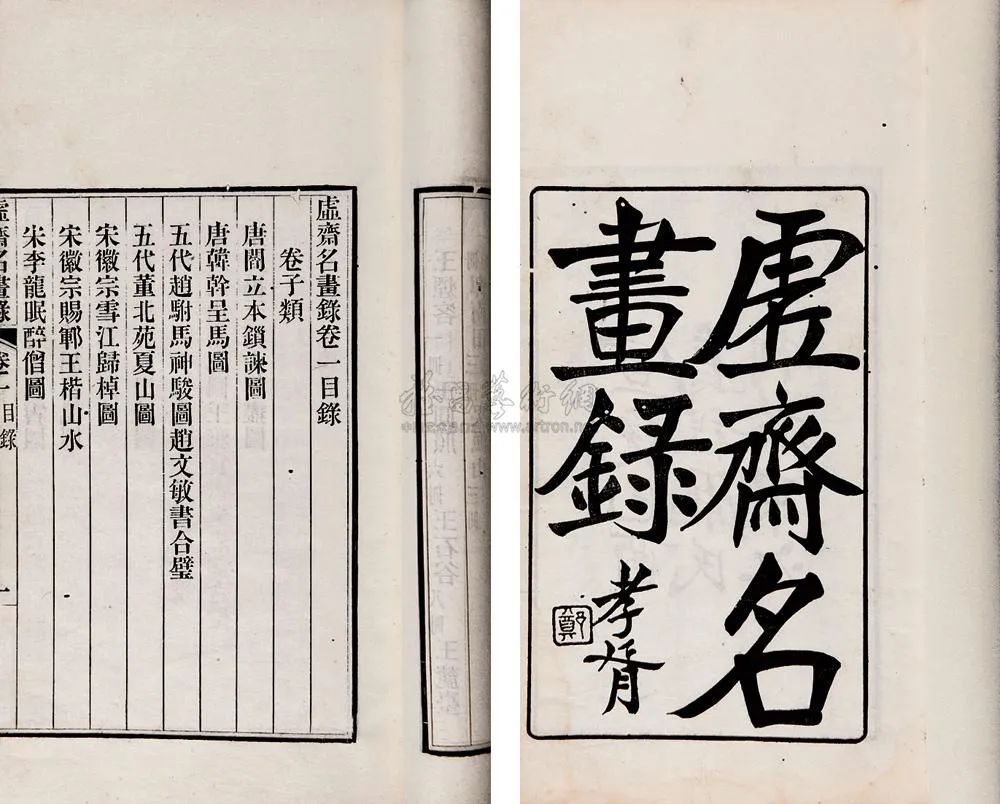 虛齋名
畫錄
孝胥
鄭
虛齋名畫錄卷一目錄
卷子類
唐閻立本鎖諫圖
唐韓幹呈馬圖
五代趙駙馬神駿圖趙文敏書合璧
五代董北苑夏山圖
宋徽宗雪江歸棹圖
宋徽宗賜鄆王楷山水
宋李龍眠醉僧圖
虛齋名畫錄 卷一 目錄 一
www.artron.net